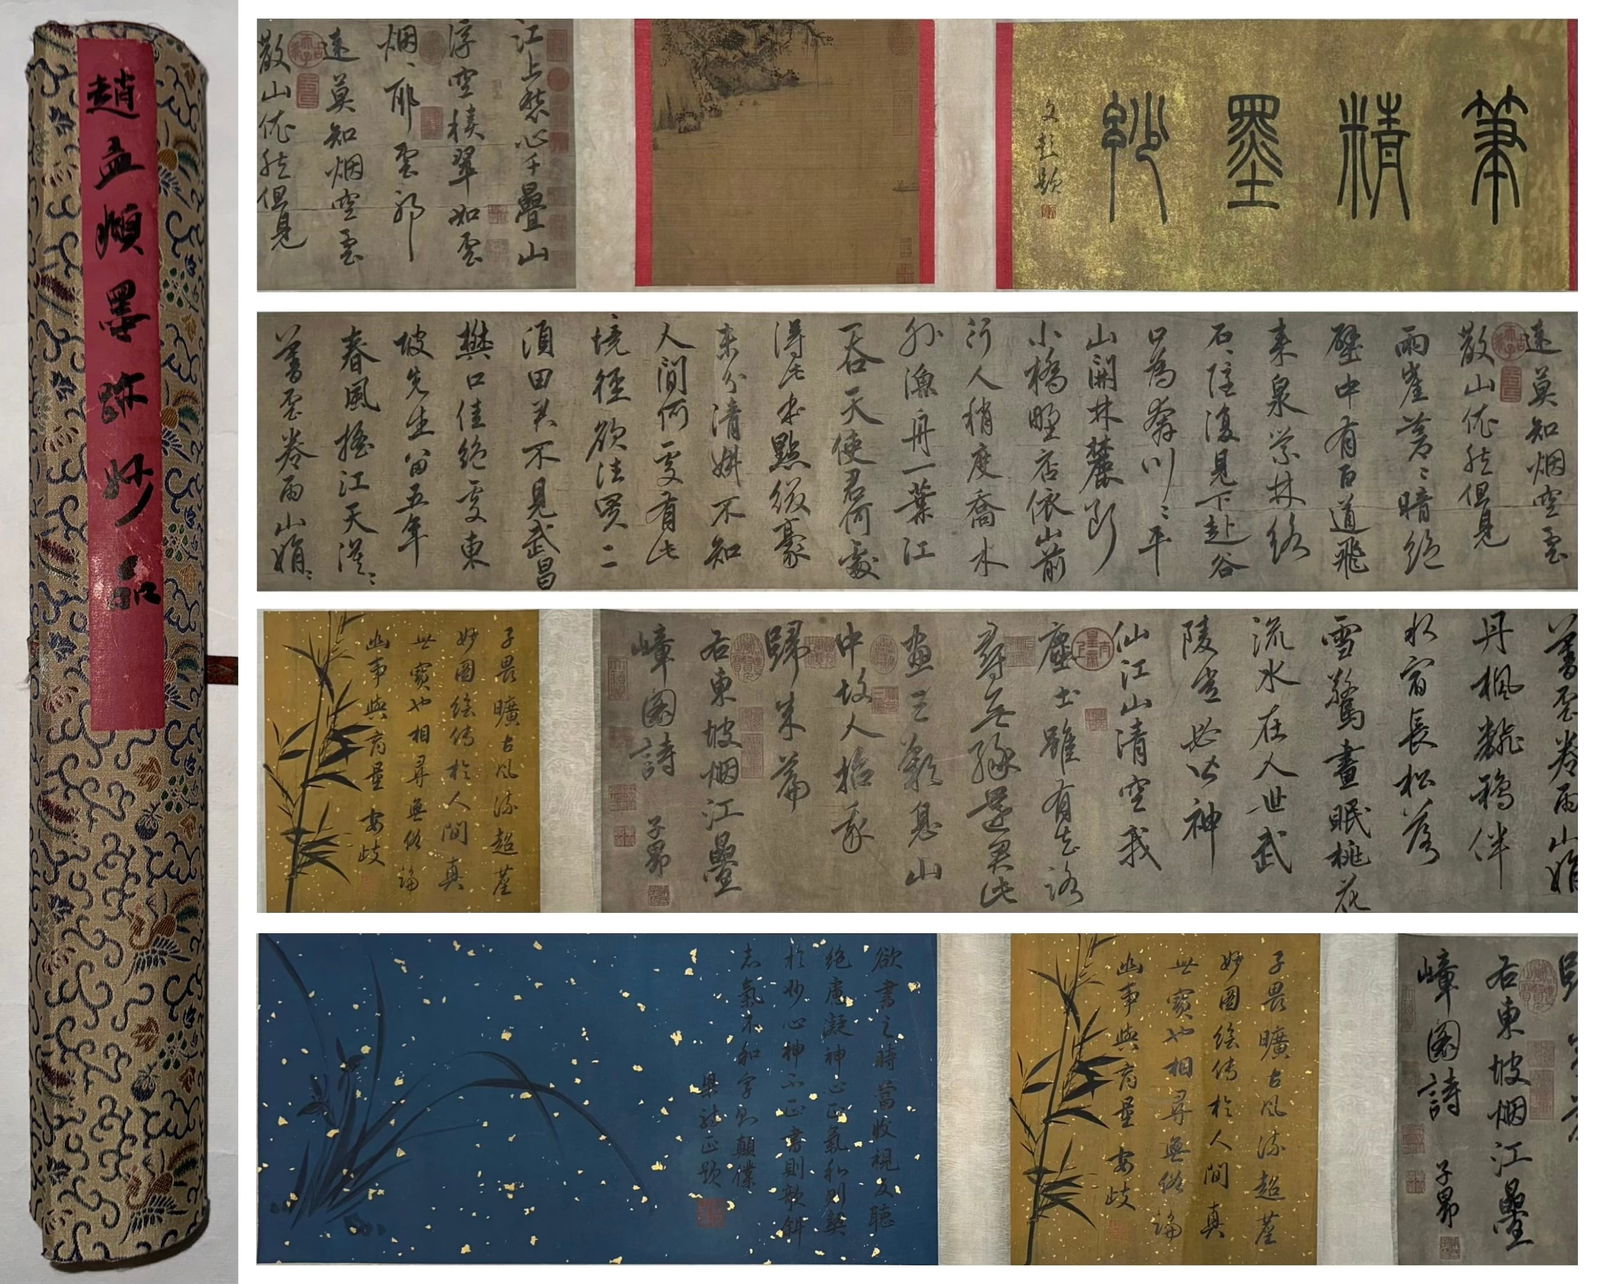 趙孟頫墨跡妙品
筆精墨妙
文彭題
江上愁心千疊山
浮空積翠如雲
烟々耶雲耶
遠莫知烟空雲
散山依然但見
遠莫知烟空雲
散山依然但見
兩崖蒼々暗絶
壑中有百道飛
來泉縈林絡
石隱復見下赴谷
口為奔川々平
山開林麓斷
小橋野店依山前
行人稍度喬木
外漁舟一葉江
吞天使君何處
得此本點綴毫
末分清妍不知
人間何處有此
境徑欲往買二
頃田君不見武昌
樊口佳絶處東
坡先生留五年
春風搖江天漠々
暮雲卷雨山娟々
暮雲卷雨山娟
丹楓翻鴉伴
水宿長松落
雪驚晝眠桃花
流水在人世武
陵豈必皆神
仙江山清空我
塵土雖有去路
尋無緣還君此
畫三歎息山
中故人招我
歸來篇
右東坡烟江疊
嶂圖詩 子昂
子畏曠古風流超荃
妙圖繪傳於人間真
世寶也相尋無俗論
幽事與高量 安歧
右東坡烟江疊
嶂圖詩 子昂
子畏曠古風流超荃
妙圖繪傳於人間真
世寶也相尋無俗論
幽事與高量 安歧
欲書之時當收視反聽
絕慮凝神心正氣和則契
於妙心神不正書則欹斜
志氣不和字則顛僕
梁詩正題